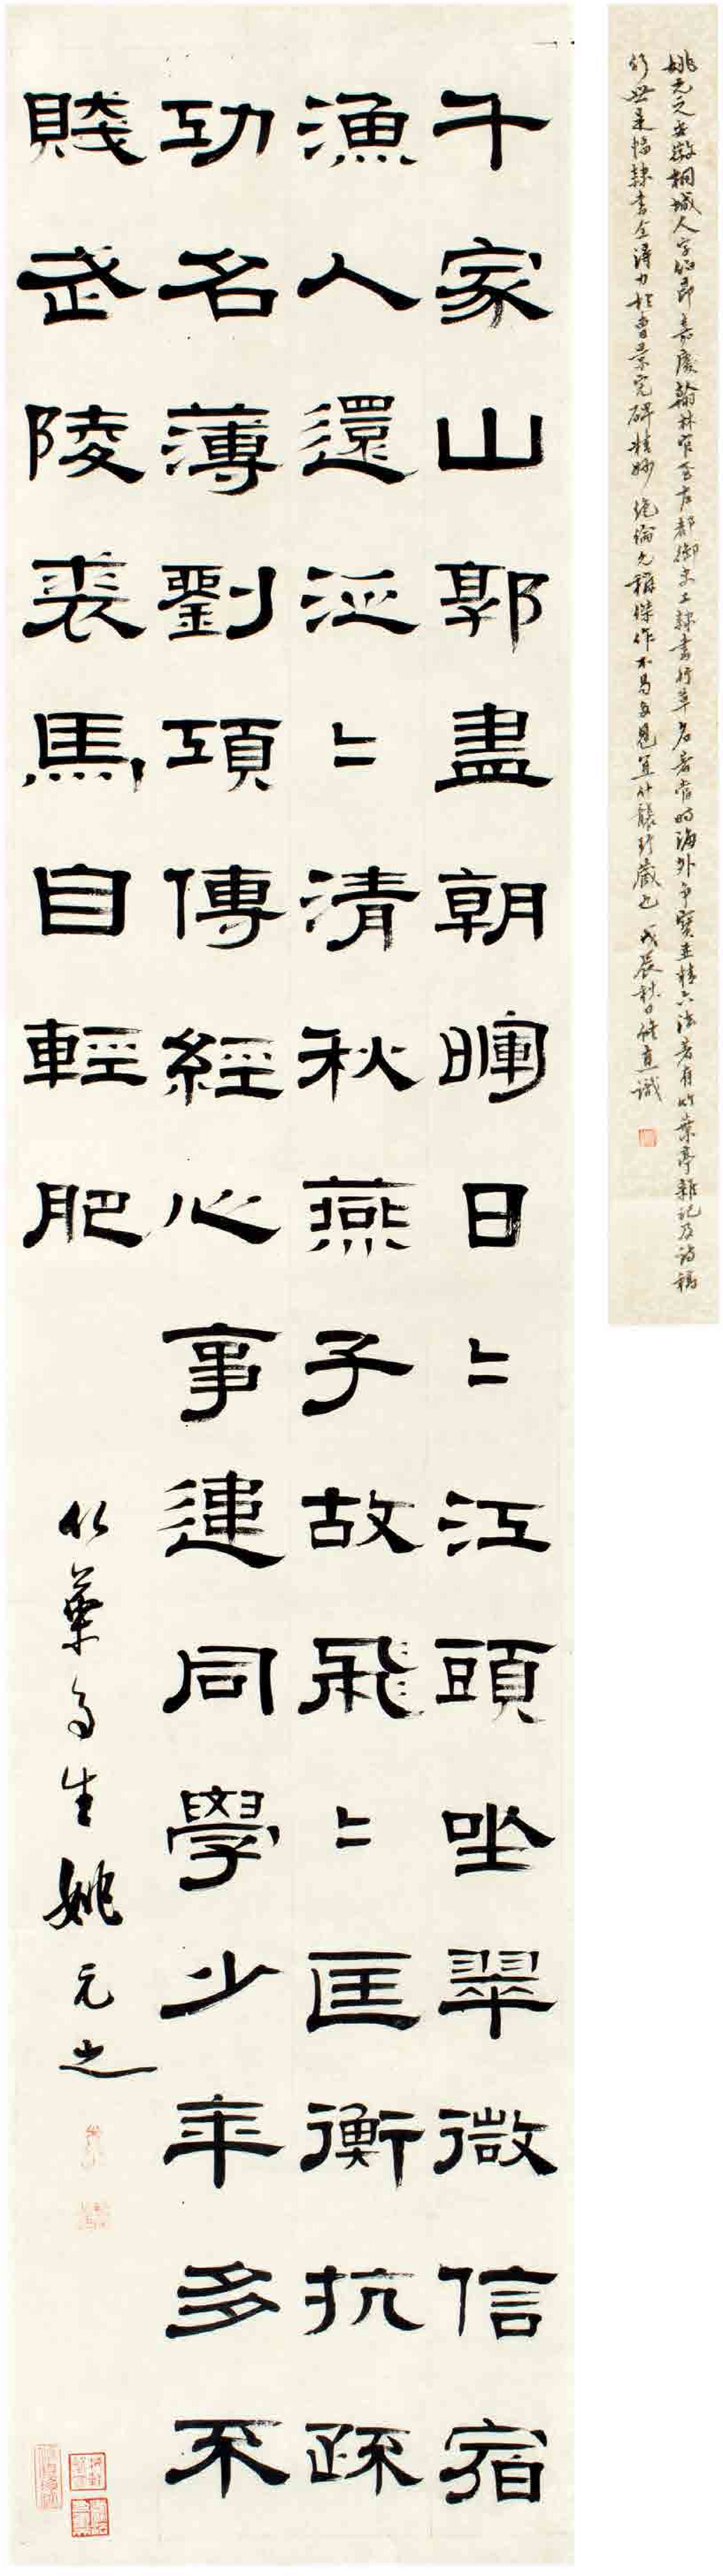 姚元之安徽桐城人字伯昂嘉慶翰林官至左都御史工隸書行草名著當時海外爭寶並精六法著有竹葉亭雜記及詩稿
行世是幅隸書全得力於曹景完碑精妙絕倫允稱傑作不易多見宜什襲珍藏也 戊辰秋日直識
千家山郭盡朝暉日〻江頭坐翠微信宿
漁人還泛〻清秋燕子故飛〻匡衡抗疏
功名薄劉項傳經心事違同學少年多不
賤武陵裘馬自輕肥
竹葉亭生姚元之